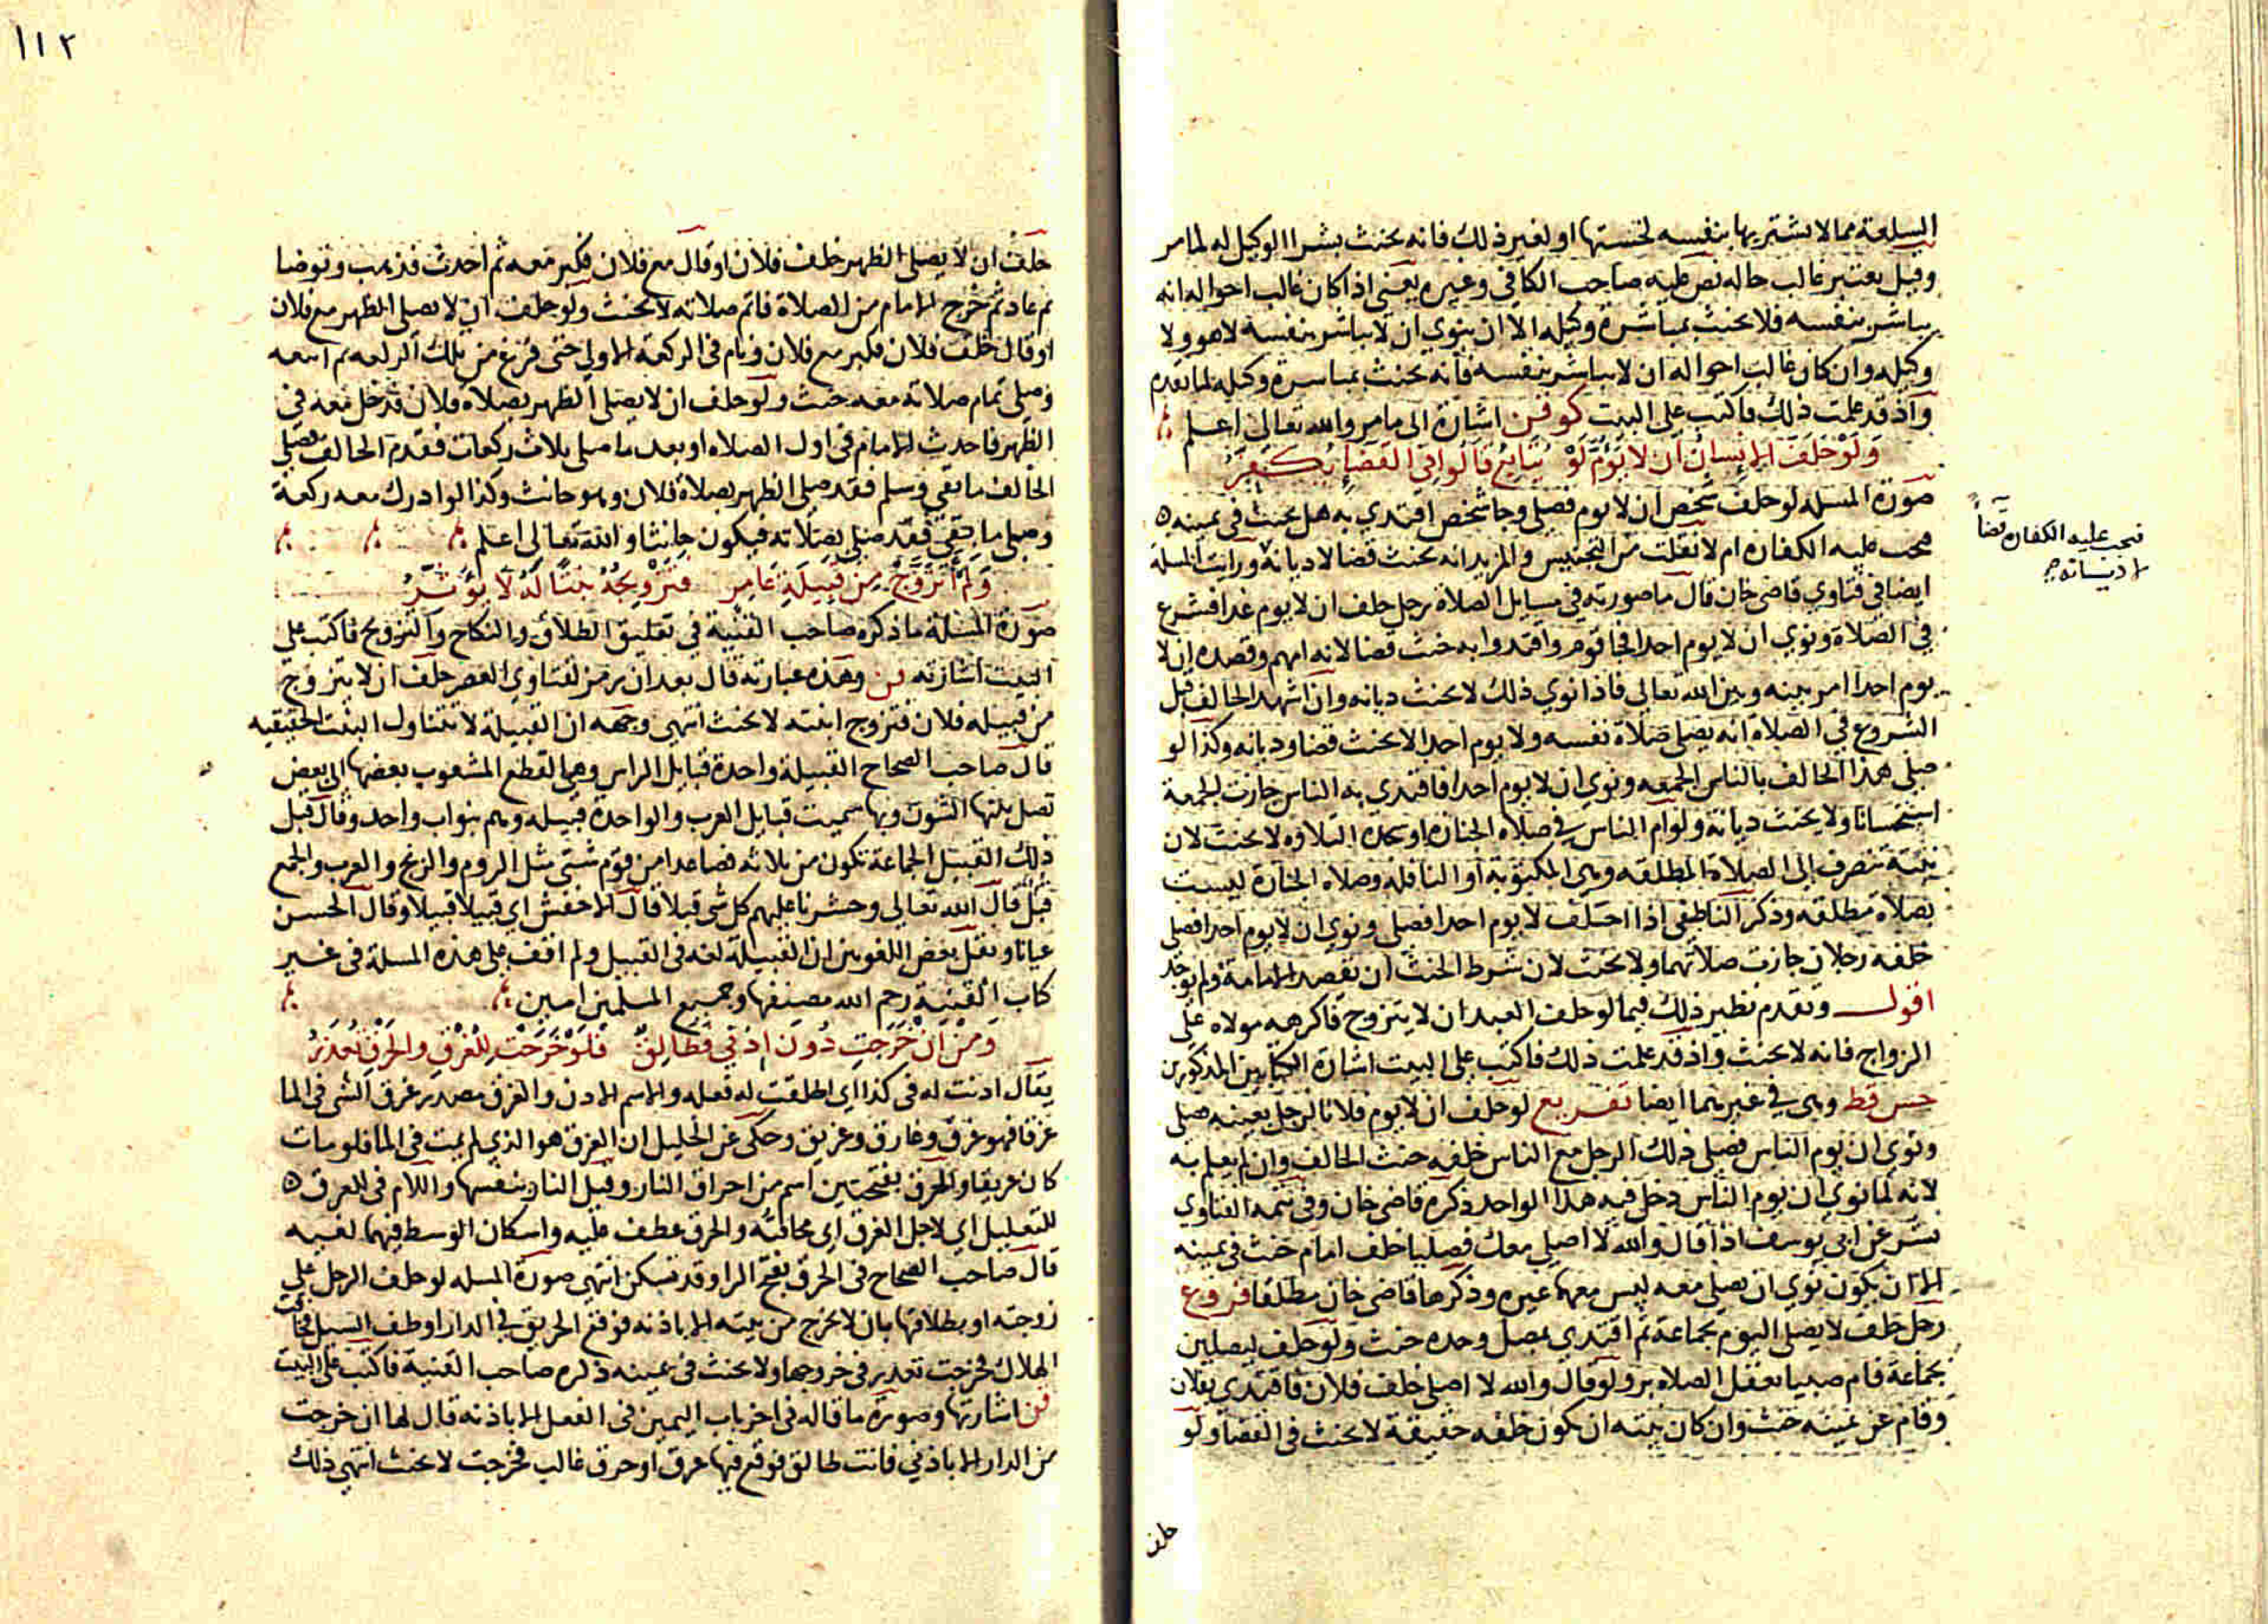 السلعة مما لا يشتريها بنفسه لخستها او لغير ذلك فانه يحنث بشرا الوكيل له لما مر
وقيل يعتبر غالب حاله نص عليه صاحب الكافي وغيره يعني اذا كان غالب احواله انه
يباشر بنفسه فلا يحنث بمباشرة وكيله الا ان ينوي ان لا يباشر بنفسه لا هو ولا
وكيله وان كان غالب احواله ان لا يباشر بنفسه فانه يحنث بمباشرة وكيله لما تقدم
واذ قد علمت ذلك فاكتب على البيت كو فن اشارة الى ما مر والله تعالى اعلم
ولو حلف الانسان ان لا يؤم لو يتابع قالوا في القضا يكفر
صورة المسله لو حلف شخص ان لا يوم فصلى وجا شخص اقتدي به هل يحنث في يمينه
فتجب عليه الكفارة ام لا نقلت من التجنيس والمزيد انه يحنث قضا لا ديانة ورايت المسلة
فتجب عليه الكفارة قضاً
لا ديانة
ايضا في فتاوي قاضي خان قال ما صورته في مسايل الصلاة رجل حلف ان لا يوم غدا فشرع
في الصلاة ونوي ان لا يوم احدا فجا قوم واقتدوا به حنث قضا لانه امهم وقصده ان لا
يوم احدا امر بينه وبين الله تعالى فاذا نوي ذلك لا يحنث ديانه وان اشهد الحالف قبل
الشروع في الصلاة انه يصلي صلاة نفسه ولا يوم احدا لا يحنث قضا وديانه وكذا لو
صلى هذا الحالف بالناس الجمعه ونوي ان لا يوم احدا فاقتدي به الناس جازت الجمعة
استحسانا ولا يحنث ديانة ولو ام الناس في صلاة الجنازة او سجدة التلاوه لا يحنث لان
يمينه تنصرف الى الصلاة المطلقه وهي المكتوبة او النافله وصلاه الجنازة ليست
بصلاة مطلقه وذكر الناطفي اذا احلف لا يوم احدا فصلى ونوي ان لا يوم احدا فصلى
خلفه رجلان جازت صلاتهما ولا يحنث لان شرط الحنث ان يقصد الامامة ولم توجد
اقول وتقدم نظير ذلك فيما لو حلف العبد ان لا يتزوج فاكرهه مولاه على
الزواج فانه لا يحنث واذ قد علمت ذلك فاكتب على البيت اشارة الكتابين المذكورين
جس قط وهي في غيرهما ايضا تفريع لو حلف ان لا يوم فلانا لرجل بعينه صلى
ونوي ان يوم الناس فصلى ذلك الرجل مع الناس خلفه حنث الحالف وان لم يعلم به
لانه لما نوي ان يوم الناس دخل فيه هذا الواحد ذكره قاضي خان وفي تتمة الفتاوي
بشر عن ابي يوسف اذا قال والله لا اصلي معك فصليا خلف امام حنث في يمينه
الا ان يكون نوي ان يصلي معه ليس معهما غيره وذكرها قاضي خان مطلقا فروع
رجل حلف لا يصلي اليوم بجماعة ثم اقتدي بمصل وحده حنث ولو حلف ليصلين
بجماعة فام صبيا يعقل الصلاة بر ولو قال والله لا اصلي خلف فلان فاقتدي بفلان
وقام عن يمينه حنث وان كان نيته ان يكون خلفه حقيقة لا يحنث في القضا ولو
حلف
١١٢
حلف ان لا يصلي الظهر خلف فلان او قال مع فلان فكبر معه ثم احدث فذهب وتوضا
ثم عاد ثم خرج الامام من الصلاة فاتم صلاته لا يحنث ولو حلف ان لا يصلي الظهر مع فلان
او قال خلف فلان فكبر مع فلان ونام في الركعة الاولي حتى فرغ من تلك الركعه ثم اتبعه
وصلى تمام صلاته معه حنث ولو حلف ان لا يصلي الظهر بصلاة فلان فدخل معه في
الظهر فاحدث الامام في اول الصلاه او بعد ما صلى ثلاث ركعات فقدم الحالف فصلى
الحالف ما بقي وسلم فقد صلى الظهر بصلاة فلان وهو حانث وكذا لو ادرك معه ركعة
وصلى ما بقي فقد صلى بصلاته فيكون حانثا والله تعالى اعلم
ولم اتزوج من قبيلة عامر فتزويجه بنتا له لا يؤثر
صورة المسئلة ما ذكره صاحب القنية في تعليق الطلاق والنكاح والتزويج فاكتب على
البيت اشارته فن وهذه عبارته قال بعد ان رمز لفتاوي العصر حلف ان لا يتزوج
من قبيله فلان فتزوج ابنته لا يحنث انتهى وجهه ان القبيلة لا تتناول البنت الحقيقيه
قال صاحب الصحاح القبيلة واحدة قبايل الراس وهي القطع المشعوب بعضها الى بعض
تصل بها الشئون وبها سميت قبايل العرب والواحدة قبيله وهم بنو اب واحد وقال قبل
ذلك القبيل الجماعة تكون من ثلاثه فصاعدا من قوم شتى مثل الروم والزنج والعرب والجمع
قبل قال الله تعالي وحشرنا عليهم كل شي قبلا قال الاخفش اي قبيلا قبيلا وقال الحسن
عيانا ونقل بعض اللغويين ان القبيلة لغه في القبيل ولم اقف على هذه المسلة في غير
كتاب القنية رحم الله مصنفها وجميع المسلمين امين
ومن ان خرجت دون اذني فطالق فلو خرجت للغرق والحرق تعذر
يقال اذنت له في كذا اي اطلقت له فعله والاسم الاذن والغرق مصدر غرق الشي في الما
غرقا فهو غرق وغارق وغريق وحكى عن الخليل ان الغرق هو الذي لم يمت في الما فلو مات
كان غريقا والحرق بفتحتين اسم من احراق النار وقيل النار بنفسها واللام في للغرق
للتعليل اي لاجل الغرق اي مخافته والحرق عطف عليه واسكان الوسط فيهما لغيه
قال صاحب الصحاح في الحرق بفتح الرا وقد تسكن انتهى صورة المسله لو حلف الرجل على
زوجته او بطلاقها بان لا تخرج من بيته الا باذنه فوقع الحريق في الدار او طف السيل فخافت
الهلاك فخرجت تعذر في خروجها ولا يحنث في يمينه ذكره صاحب القنية فاكتب على البيت
فن اشارتها وصورة ما قاله في اخر باب اليمين في الفعل الا باذنه قال لها ان خرجت
من الدار الا باذني فانت طالق فوقع فيها غرق او حرق غالب فخرجت لا يحنث انتهى ذلك